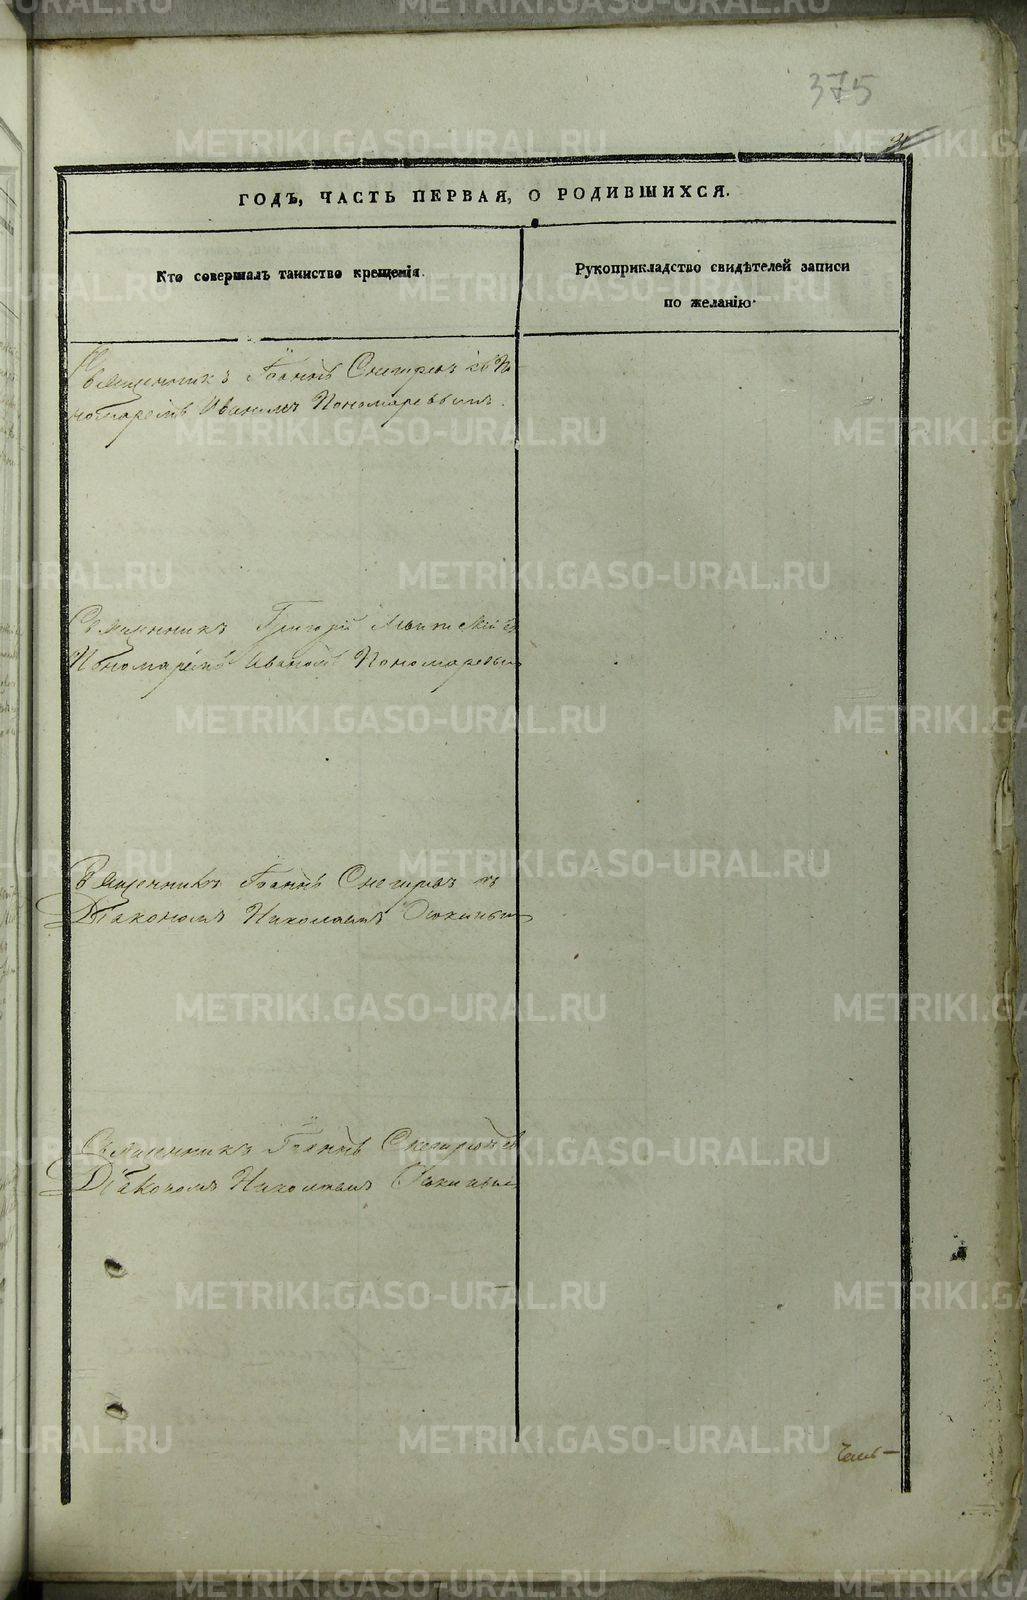 375
ГОДЪ, ЧАСТЬ ПЕРВАЯ, О РОДИВШИХСЯ.
Кто совершалъ таинство крещенія.
Рукоприкладство свидѣтелей записи
по желанію.
Священникъ Іоаннъ Снегиревъ съ По-
номаремъ Иваномъ Пономаревымъ.
Священникъ Григорій съ
Пономаремъ Иваномъ Пономаревым
Священникъ Іоаннъ Снегиревъ съ
Діакономъ Николаемъ
Священникъ Іоаннъ Снегиревъ съ
Діакономъ Николаемъ
METRIKI.GASO-URAL.RU